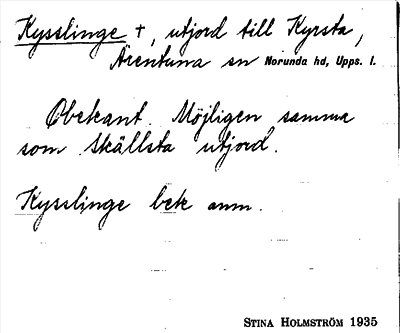 Kysslinge †, utjord till Kyrsta,
Ärentuna sn Norunda hd, Upps. l.
Obekant. Möjligen samma
som Skällsta utjord?
Kysslinge bek anm.
STINA HOLMSTRÖM 1935